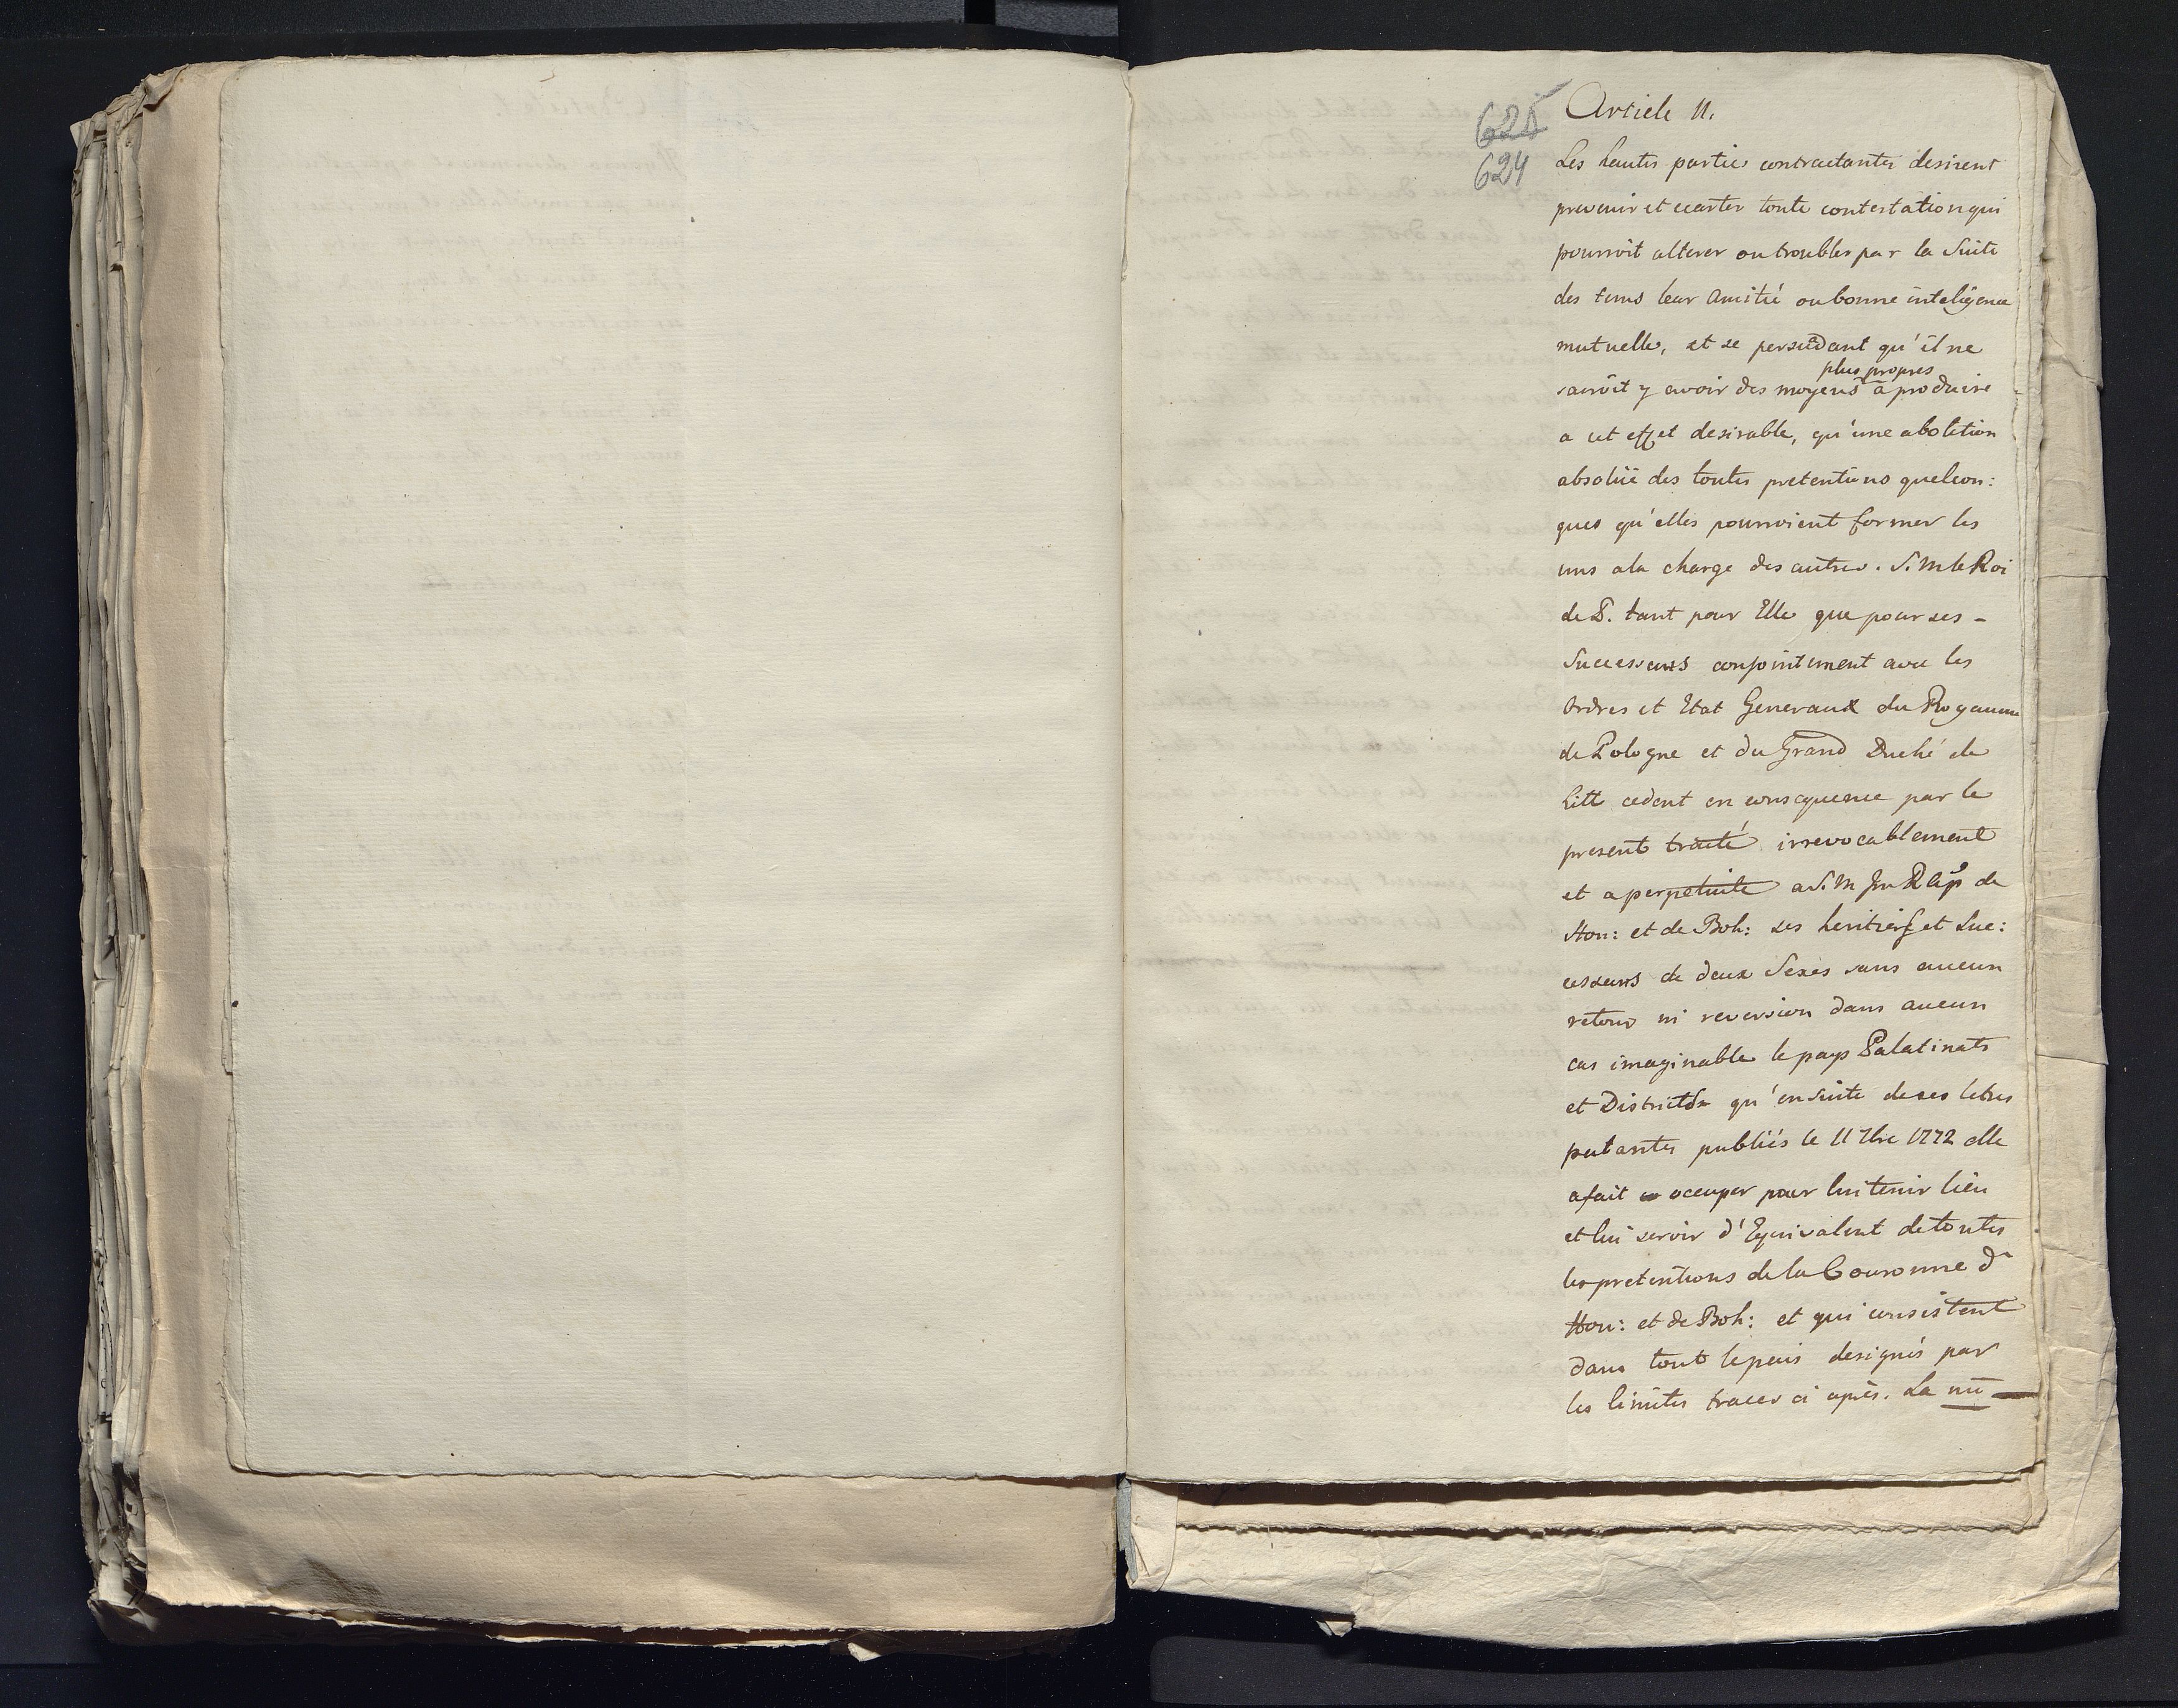 625
624
Article II.
Les hautes parties contractantes desirent
prevenir et ecarter toute contestation qui
pourroit alterer ou troubler par la Suite
des tems leur amitié ou bonne inteligence
mutuelle, et se persuadant qu'il ne
plus propres
sauroit y avoir des moyens à produire
a cet effet desirable, qu'une abolition
absolüe des toutes pretentions quelcon:
ques qu'elles pourroient former les
uns a la charge des autres. S. M le Roi
de P. tant pour Elle que pour ses -
Successeurs conjointement avec les
Ordres et Etat Generaux du Royaume
de Pologne et du Grand Duché de
Litt cedent en consequence par le
present traité irrevocablement
et a perpetuite a S. M de
Hon: et de Boh: ses heritiers et Suc:
cesseurs de deux Sexes sans aucun
retour ni reversion dans aucun
cas imaginable le pays Palatinats
et Districts qu'en Suite de ses letres
patantes publiés le 11 7bre 1772 elle
a fait occuper pour lui tenir lieu
et lui servir d'Equivalent de toutes
les pretentions de la Couronne d
Hon: et de Boh: et qui consistent
dans tout le pais designés par
les limites traces ci après. La